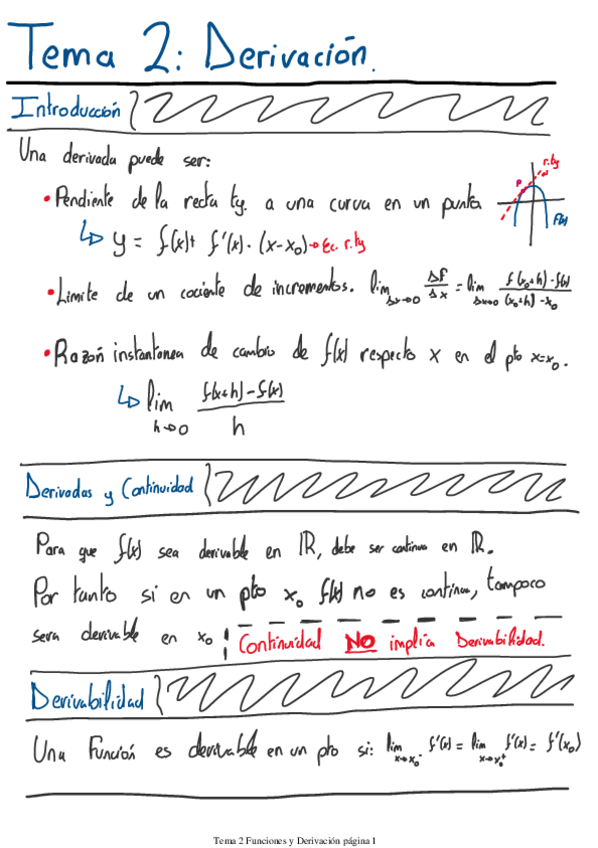 Tema 2: Derivación.
Introducción
Una derivada puede ser:
r.tg
P
F(x)
• Pendiente de la recta tg. a una curva en un punto
↳ y = f(x)+ f'(x)·(x-x₀)→Ec. r.tg
• Limite de un cociente de incrementos. lim Δx→0 Δf/Δx = lim Δx→0 f(x₀+h)-f(x)/(x₀+h)-x₀
• Razón instantanea de cambio de f(x) respecto x en el pto x=x₀.
↳ lim h→0 f(x+h)-f(x)/h
Derivadas y Continuidad
Para que f(x) sea derivable en ℝ, debe ser continua en ℝ.
Por tanto si en un pto x₀ f(x) no es continua, tampoco
sera derivable en x₀ Continuidad NO implia Derivabilidad.
Derivabilidad
Una Función es derivable en un pto si: lim x→x₀⁻ f'(x) = lim x→x₀⁺ f'(x) = f'(x₀)
Tema 2 Funciones y Derivación página 1